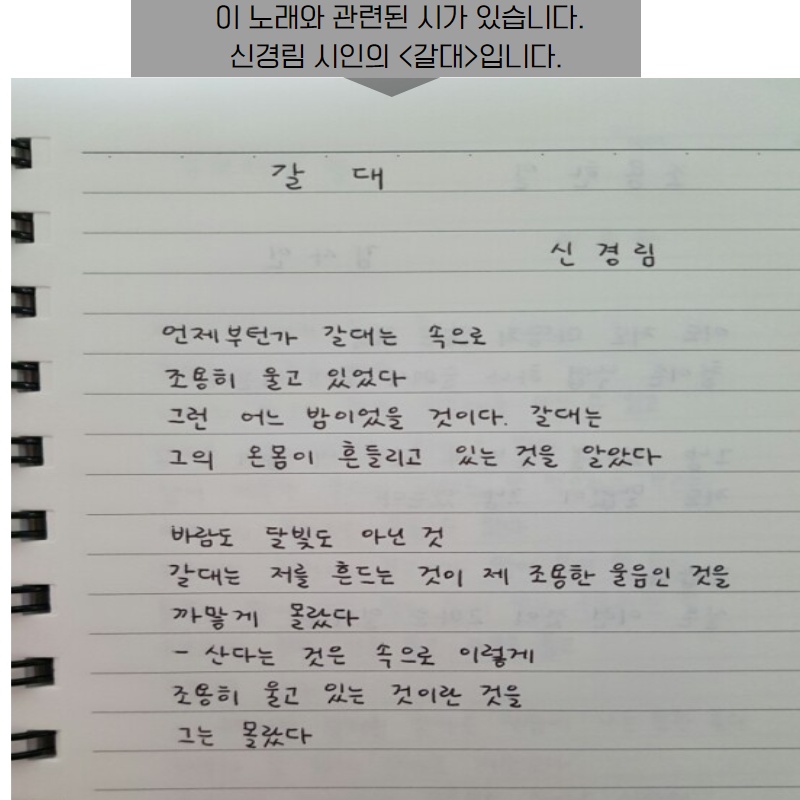 이 노래와 관련된 시가 있습니다.
신경림 시인의 <갈대>입니다.
갈 대
신 경 림
언제부턴가 갈대는 속으로
조용히 울고 있었다
그런 어느 밤이었을 것이다. 갈대는
그의 온몸이 흔들리고 있는 것을 알았다
바람도 달빛도 아닌 것
갈대는 저를 흔드는 것이 제 조용한 울음인 것을
까맣게 몰랐다
- 산다는 것은 속으로 이렇게
조용히 울고 있는 것이란 것을
그는 몰랐다